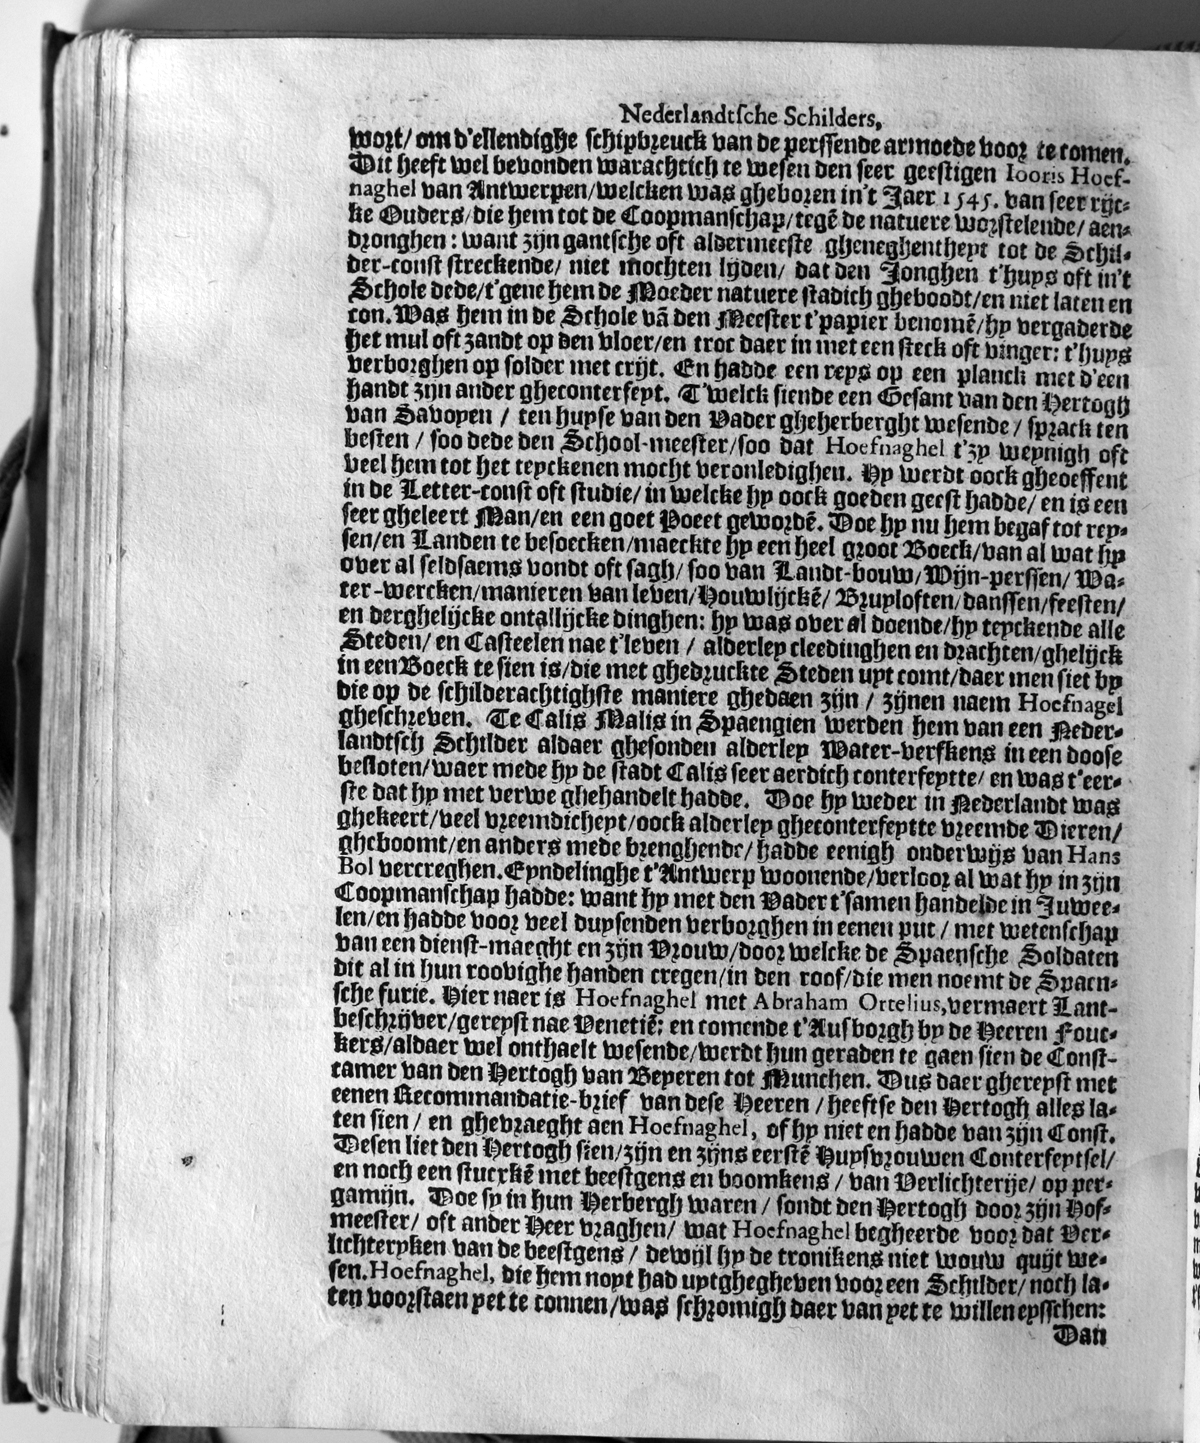 Nederlandtſche Schilders,
wort/ om d'ellendighe ſchipbreuck van de perſſende armoede voor te comen.
Dit heeft wel bevonden warachtich te weſen den ſeer geeſtigen Iooris Hoef-
naghel van Antwerpen/welcken was gheboren in't Jaer 1545. van ſeer rijc-
ke Ouders/die hem tot de Coopmanſchap/tegẽ de natuere worſtelende/ aen-
dronghen: want zijn gantſche oft aldermeeſte gheneghentheyt tot de Schil-
der-conſt ſtreckende/ niet mochten lijden/ dat den Jonghen t'huys oft in't
Schole dede/t'gene hem de Moeder natuere ſtadich gheboodt/en niet laten en
con. Was hem in de Schole vã den Meeſter t'papier benomẽ/hy vergaderde
het mul oft zandt op den vloer/en troc daer in met een ſteck oft vinger: t'huys
verborghen op ſolder met crijt. En hadde een reys op een planck met d'een
handt zijn ander gheconterfeyt. T'welck ſiende een Geſant van den Hertogh
van Savoyen / ten huyſe van den Vader gheherberght weſende / ſprack ten
beſten / ſoo dede den School-meeſter/ſoo dat Hoefnaghel t'zy weynigh oft
veel hem tot het teyckenen mocht veronledighen. Hy werdt oock gheoeffent
in de Letter-conſt oft ſtudie/ in welcke hy oock goeden geeſt hadde/ en is een
ſeer gheleert Man/en een goet Poeet gewordẽ. Doe hy nu hem begaf tot rey-
ſen/en Landen te beſoecken/maeckte hy een heel groot Boeck/van al wat hy
over al ſeldſaems vondt oft ſagh/ ſoo van Landt-bouw/Wijn-perſſen/ Wa-
ter-wercken/manieren van leven/Houwlijckẽ/ Bruyloften/danſſen/feeſten/
en derghelijcke ontallijcke dinghen: hy was over al doende/hy teyckende alle
Steden/ en Caſteelen nae t'leven / alderley cleedinghen en drachten/ghelijck
in een Boeck te ſien is/die met ghedruckte Steden uyt comt/daer men ſiet by
die op de ſchilderachtighſte maniere ghedaen zijn / zijnen naem Hoefnagel
gheſchreven. Te Calis Malis in Spaengien werden hem van een Neder-
landtſch Schilder aldaer gheſonden alderley Water-verfkens in een dooſe
beſloten/waer mede hy de ſtadt Calis ſeer aerdich conterfeytte/ en was t'eer-
ſte dat hy met verwe ghehandelt hadde. Doe hy weder in Nederlandt was
ghekeert/veel vreemdicheyt/oock alderley gheconterfeytte vreemde Dieren/
gheboomt/en anders mede brenghende/ hadde eenigh onderwijs van Hans
Bol vercreghen. Eyndelinghe t'Antwerp woonende/verloor al wat hy in zijn
Coopmanſchap hadde: want hy met den Vader t'ſamen handelde in Juwee-
len/en hadde voor veel duyſenden verborghen in eenen put / met wetenſchap
van een dienſt-maeght en zijn Vrouw/door welcke de Spaenſche Soldaten
dit al in hun roovighe handen cregen/in den roof/die men noemt de Spaen-
ſche furie. Hier naer is Hoefnaghel met Abraham Ortelius, vermaert Lant-
beſchrijver/gereyſt nae Venetiẽ: en comende t'Auſborgh by de Heeren Fouc-
kers/aldaer wel onthaelt weſende/werdt hun geraden te gaen ſien de Conſt-
camer van den Hertogh van Beyeren tot Munchen. Dus daer ghereyſt met
eenen Recommandatie-brief van deſe Heeren / heeftſe den Hertogh alles la-
ten ſien / en ghevraeght aen Hoefnaghel, of hy niet en hadde van zijn Conſt.
Deſen liet den Hertogh ſien/zijn en zijns eerſtẽ Huyſvrouwen Conterfeytſel/
en noch een ſtucxkẽ met beeſtgens en boomkens / van Verlichterije/ op per-
gamijn. Doe ſy in hun Herbergh waren / ſondt den Hertogh door zijn Hof-
meeſter/ oft ander Heer vraghen/ wat Hoefnaghel begheerde voor dat Ver-
lichteryken van de beeſtgens / dewijl hy de tronikens niet wouw quijt we-
ſen. Hoefnaghel, die hem noyt had uytghegheven voor een Schilder/ noch la-
ten voorſtaen yet te connen/was ſchromigh daer van yet te willen eyſſchen:
Dan